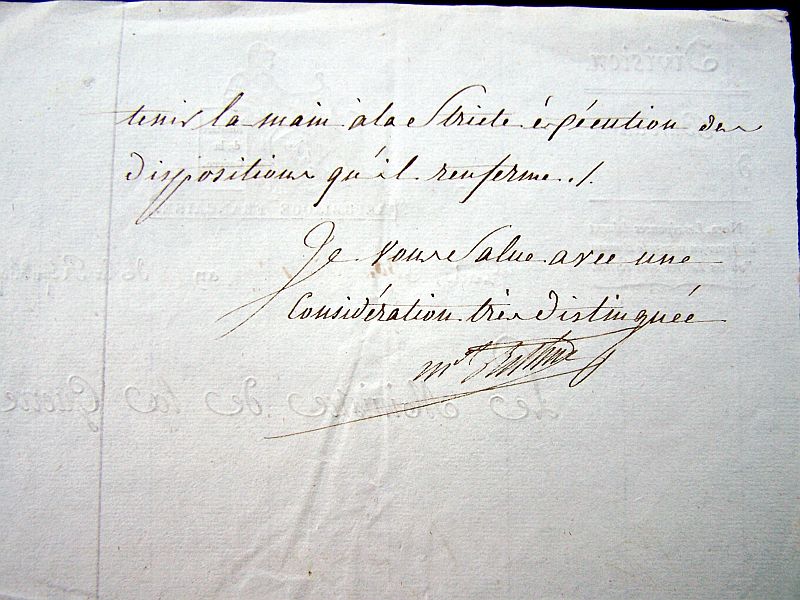 tenir la main à la Stricte éxécution des
dispositions qu'il renferme ./.
Je vous Salue avec une
Considération très distinguée
Mal Berthier
Division
RÉPUBLIQUE FRANÇAISE
an
de la Rép
Le Ministre de la Guerre